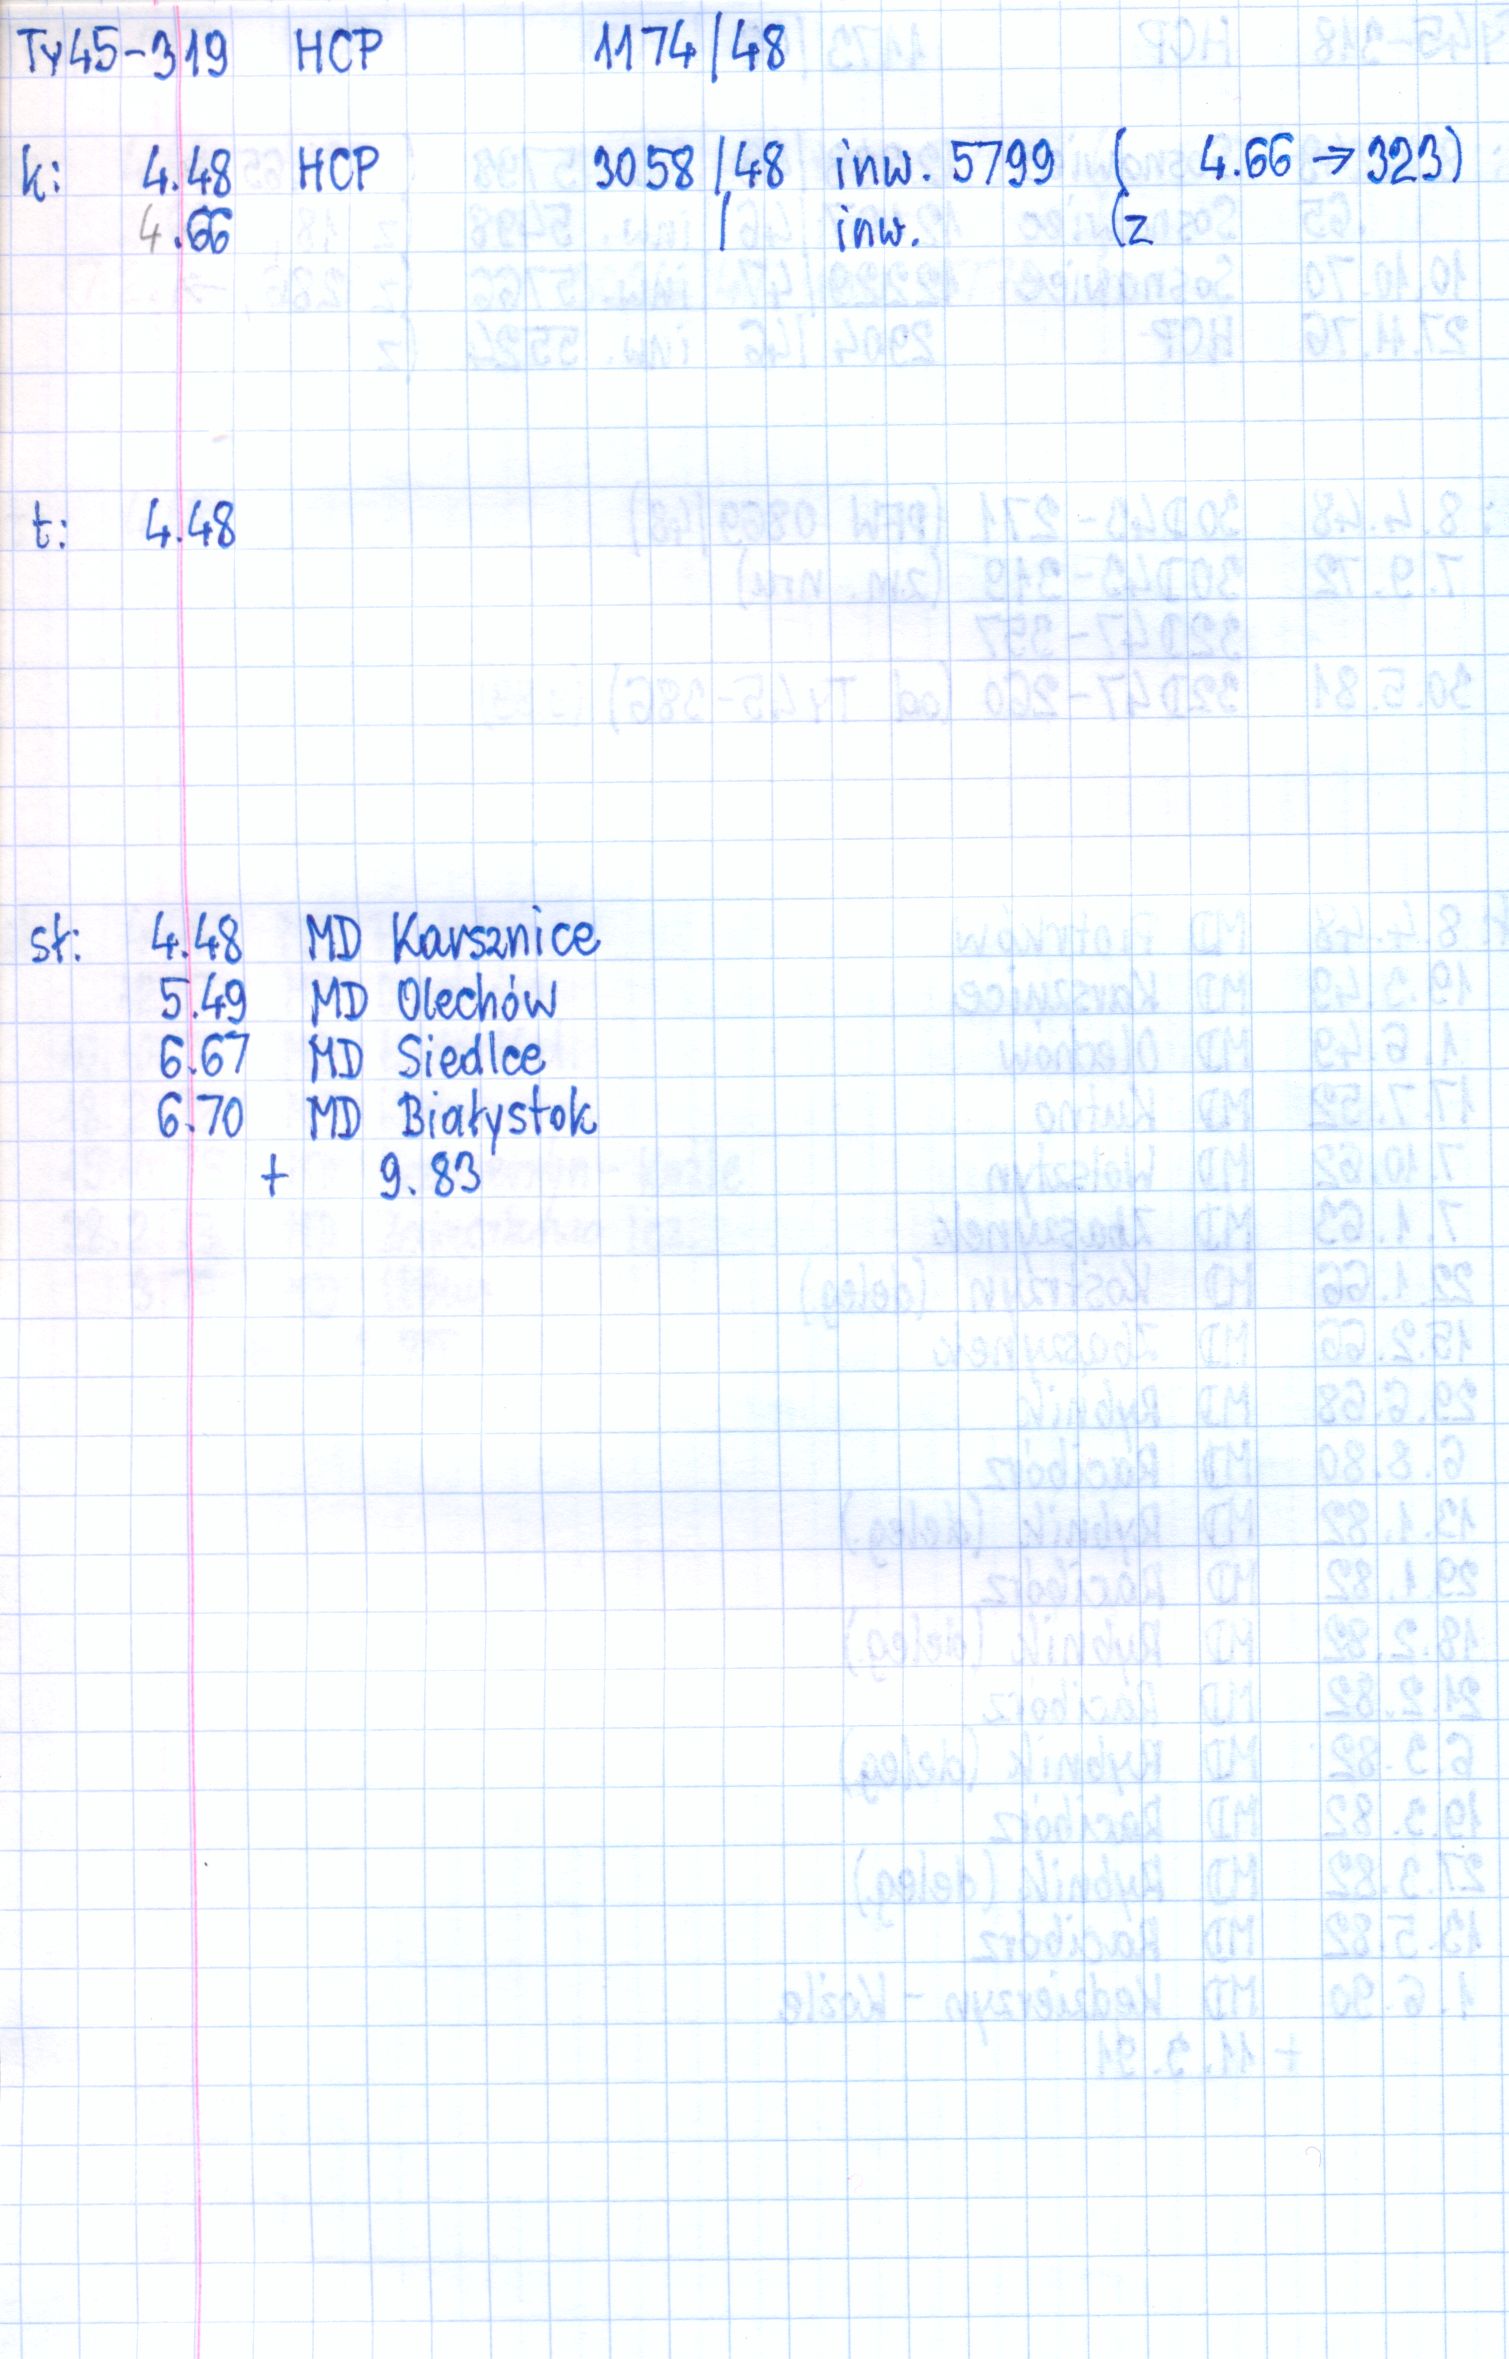 Ty45-319 HCP 1174/48
k: 4.48 HCP 3058/48 inw. 5799 ( 4.66 → 323)
4.66 / inw. (z
t: 4.48
st: 4.48 MD Karsznice
5.49 MD Olechów
6.67 MD Siedlce
6.70 MD Białystok
+ 9.83